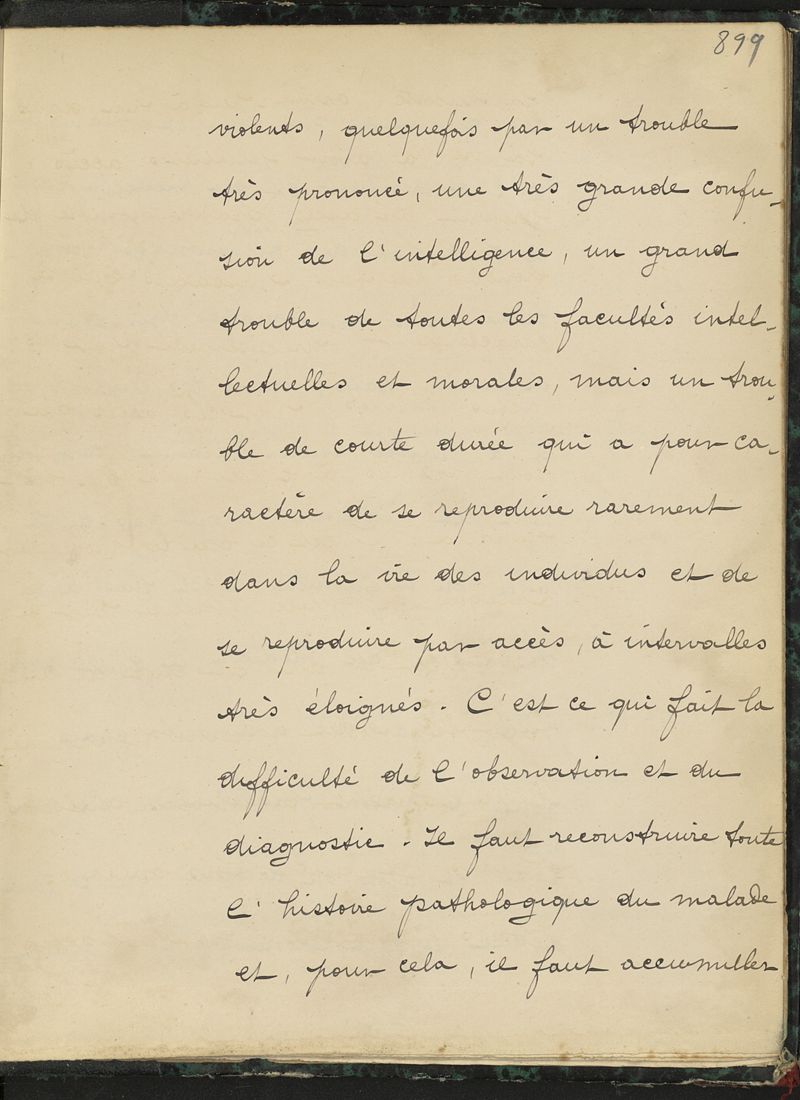 899
violents, quelquefois par un trouble
très prononcé, une très grande confu-
sion de l'intelligence, un grand
trouble de toutes les facultés intel-
lectuelles et morales, mais un trou-
ble de courte durée qui a pour ca-
ractère de se reproduire rarement
dans la vie des individus et de
se reproduire par accès, à intervalles
très éloignés. C'est ce qui fait la
difficulté de l'observation et du
diagnostic. Il faut reconstruire toute
l'histoire pathologique du malade
et, pour cela, il faut accumuller